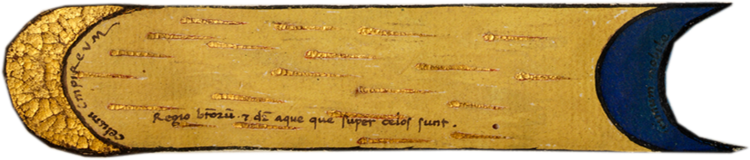 celum empireum
Regio btoꝝ · ⁊ dr̄ aque que super celos sunt .